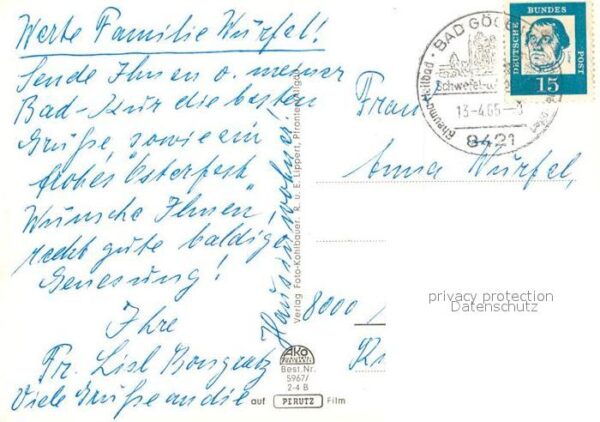 Werte Familie Würfel!
Sende Ihnen v. meiner
Bad-Kur die besten
Grüße, sowie ein
frohes Osterfest
Wünsche Ihnen,
recht gute baldige
Genesung!
Ihre
Fr. Lisl
Viele Grüße an die
Hausinwohner!
Verlag Foto-Kohlbauer. R. u. E. Lippert, Pfronten/Allgäu
AKO
Best.Nr.
5967/
2-4 B
auf PERUTZ Film
BAD GÖGG
Schwefel-u
Rheuma-Heilbad
13-4.65-
8421
DEUTSCHE BUNDES POST
15
Frau
Anna Würfel,
8000
privacy protection
Datenschutz